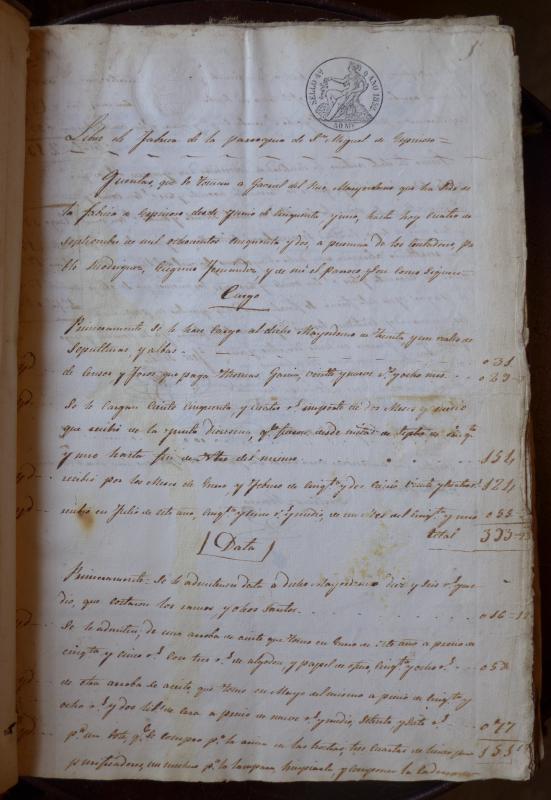 SELLO 4º AÑO 1852
40 MS
Libro de fabrica de la parroquia de Sn. Miguel de Espinoso =
Quentas, que se toman a Gabriel del Rio, Mayordomo que ha sido de
la fabrica de Espinoso, desde Junio de cinquenta y uno, hasta hoy cuatro de
septiembre de mil ochocientos cinquenta y dos, a presencia de los Contadores, Pa
blo Rodriguez, Eugenio Fernandez, y de mi el parroco, y son como sigue =
Cargo
Primeramente. Se le hace cargo al dicho Mayordomo de treinta y un reales de
sepulturas y albas. 031
de Censos y foros que paga Thomas Garcia, veinte y nueve rs. y ocho mrs. 029
Se le cargan Ciento cinquenta, y cuatro rs. importe de dos Meses y medio
que recibió de la Junta Diocesana, desde mitad de Septbre. de cinqta.
y uno hasta fin de del mismo 154
recibió por los Meses de Enero y Febrero de cinqta. y dos Ciento veinte y cuatro rs. 124
recibió en Julio de este año, cinqta. y cinco rs. y medio, de un Mes del cinqta. y uno 055
total 393
Data
Primeramente. Se le admite en data a dicho Mayordomo diez y seis rs. y me
dio, que costaron los ramos y olios santos. 016 = 17
Se le admiten, de una arroba de aceite que tomo en Enero de este año a precio de
cinqta. y cinco rs. Con tres rs. de algodon y papel de oficio, cinqta. y ocho rs. 058
de otra arroba de aceite, que tomo en Mayo del mismo a precio de cinqta. y
ocho rs. y dos lib.s de cera a precio de nueve rs. y medio, setenta y siete rs. 077
pa. un bote qe. se compro pa. la en las hostias, tres cuartas de lienzo para 151
purificadores, un mechero pa. la lampara, limpiarla y componer la cadena